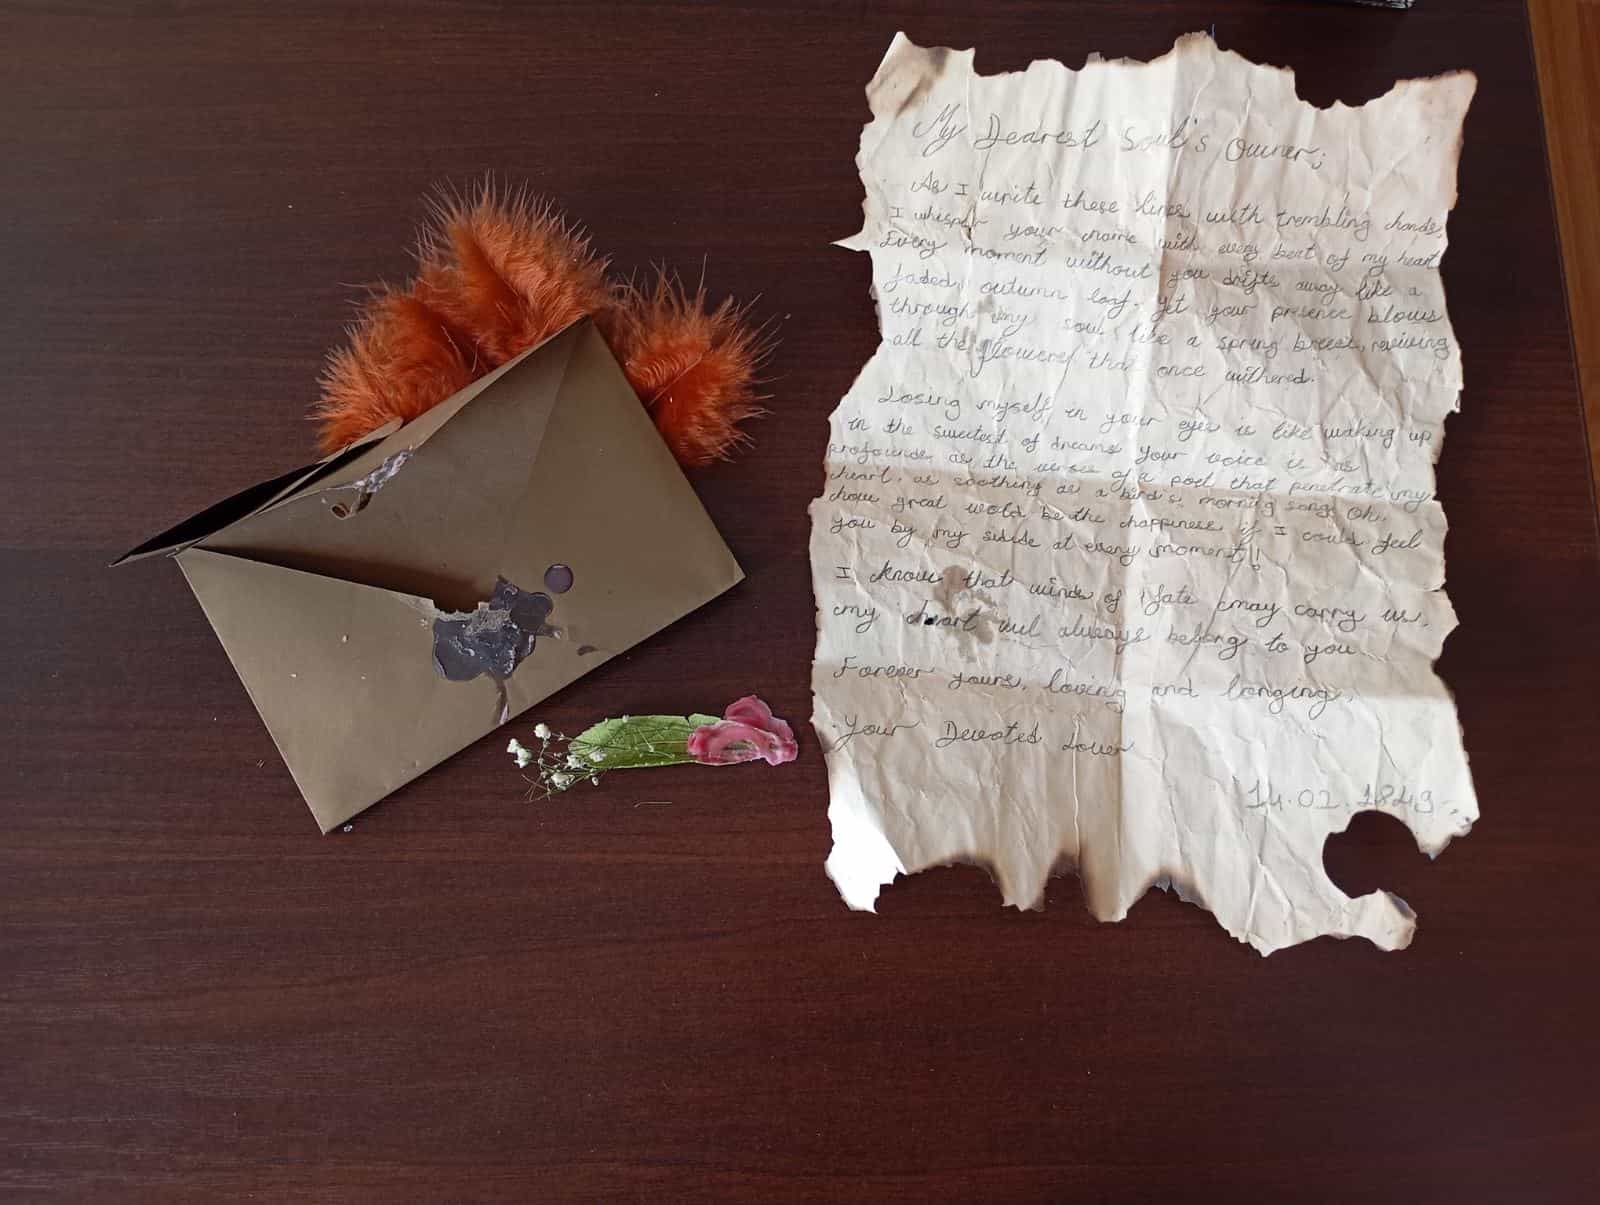 My Dearest Soul's Owner;
As I write these lines with trembling hands,
I whisper your name with every beat of my heart
Every moment without you drifts away like a
faded autumn leaf. Yet your presence blows
through my soul like a spring breeze, reviving
all the flowers that once withered.
Losing myself in your eyes is like waking up
in the sweetest of dreams Your voice is as
profounde as the verses of a poet that penetrate my
heart, as soothing as a bird's morning song. Oh,
how great wold be the happiness if I could feel
you by my side at every moment!
I know that winds of fate may carry us,
my heart will always belong to you
Forever yours, loving and longing,
Your Devoted Lover
14.02.1849